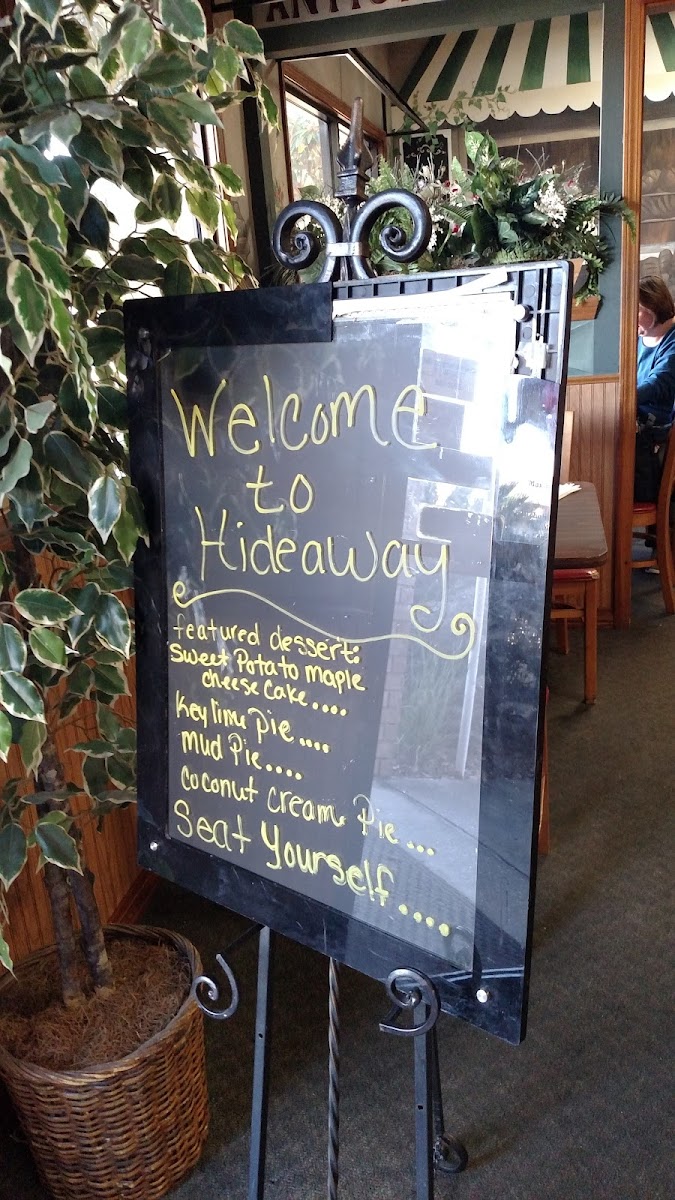 Welcome
to
Hideaway
featured dessert:
Sweet Potato maple
cheese cake....
Key lime pie....
Mud Pie....
Coconut cream Pie...
Seat Yourself....